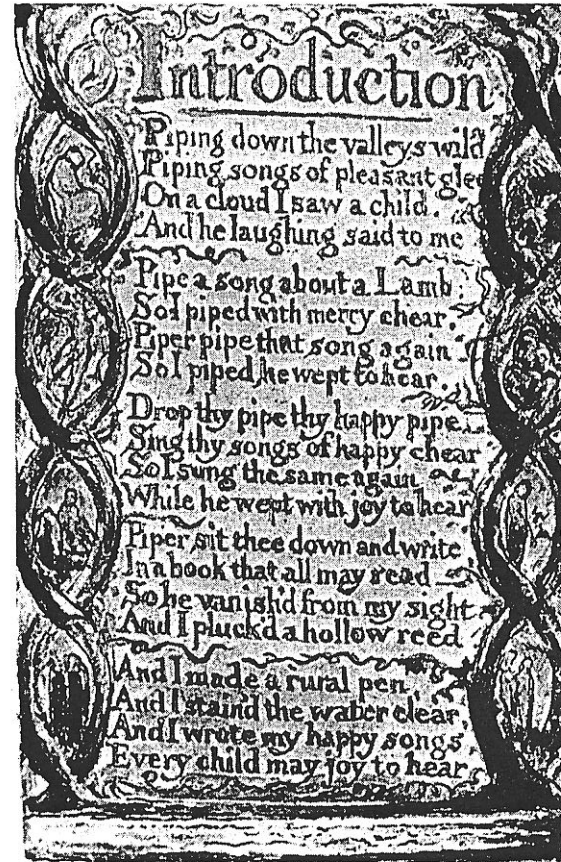 Introduction
Piping down the valleys wild
Piping songs of pleasant glee
On a cloud I saw a child.
And he laughing said to me
Pipe a song about a Lamb
So I piped with merry chear,
Piper pipe that song again
So I piped, he wept to hear.
Drop thy pipe thy happy pipe
Sing thy songs of happy chear
So I sung the same again
While he wept with joy to hear
Piper sit thee down and write
In a book that all may read
So he vanish'd from my sight
And I pluck'd a hollow reed
And I made a rural pen,
And I stain'd the water clear,
And I wrote my happy songs
Every child may joy to hear